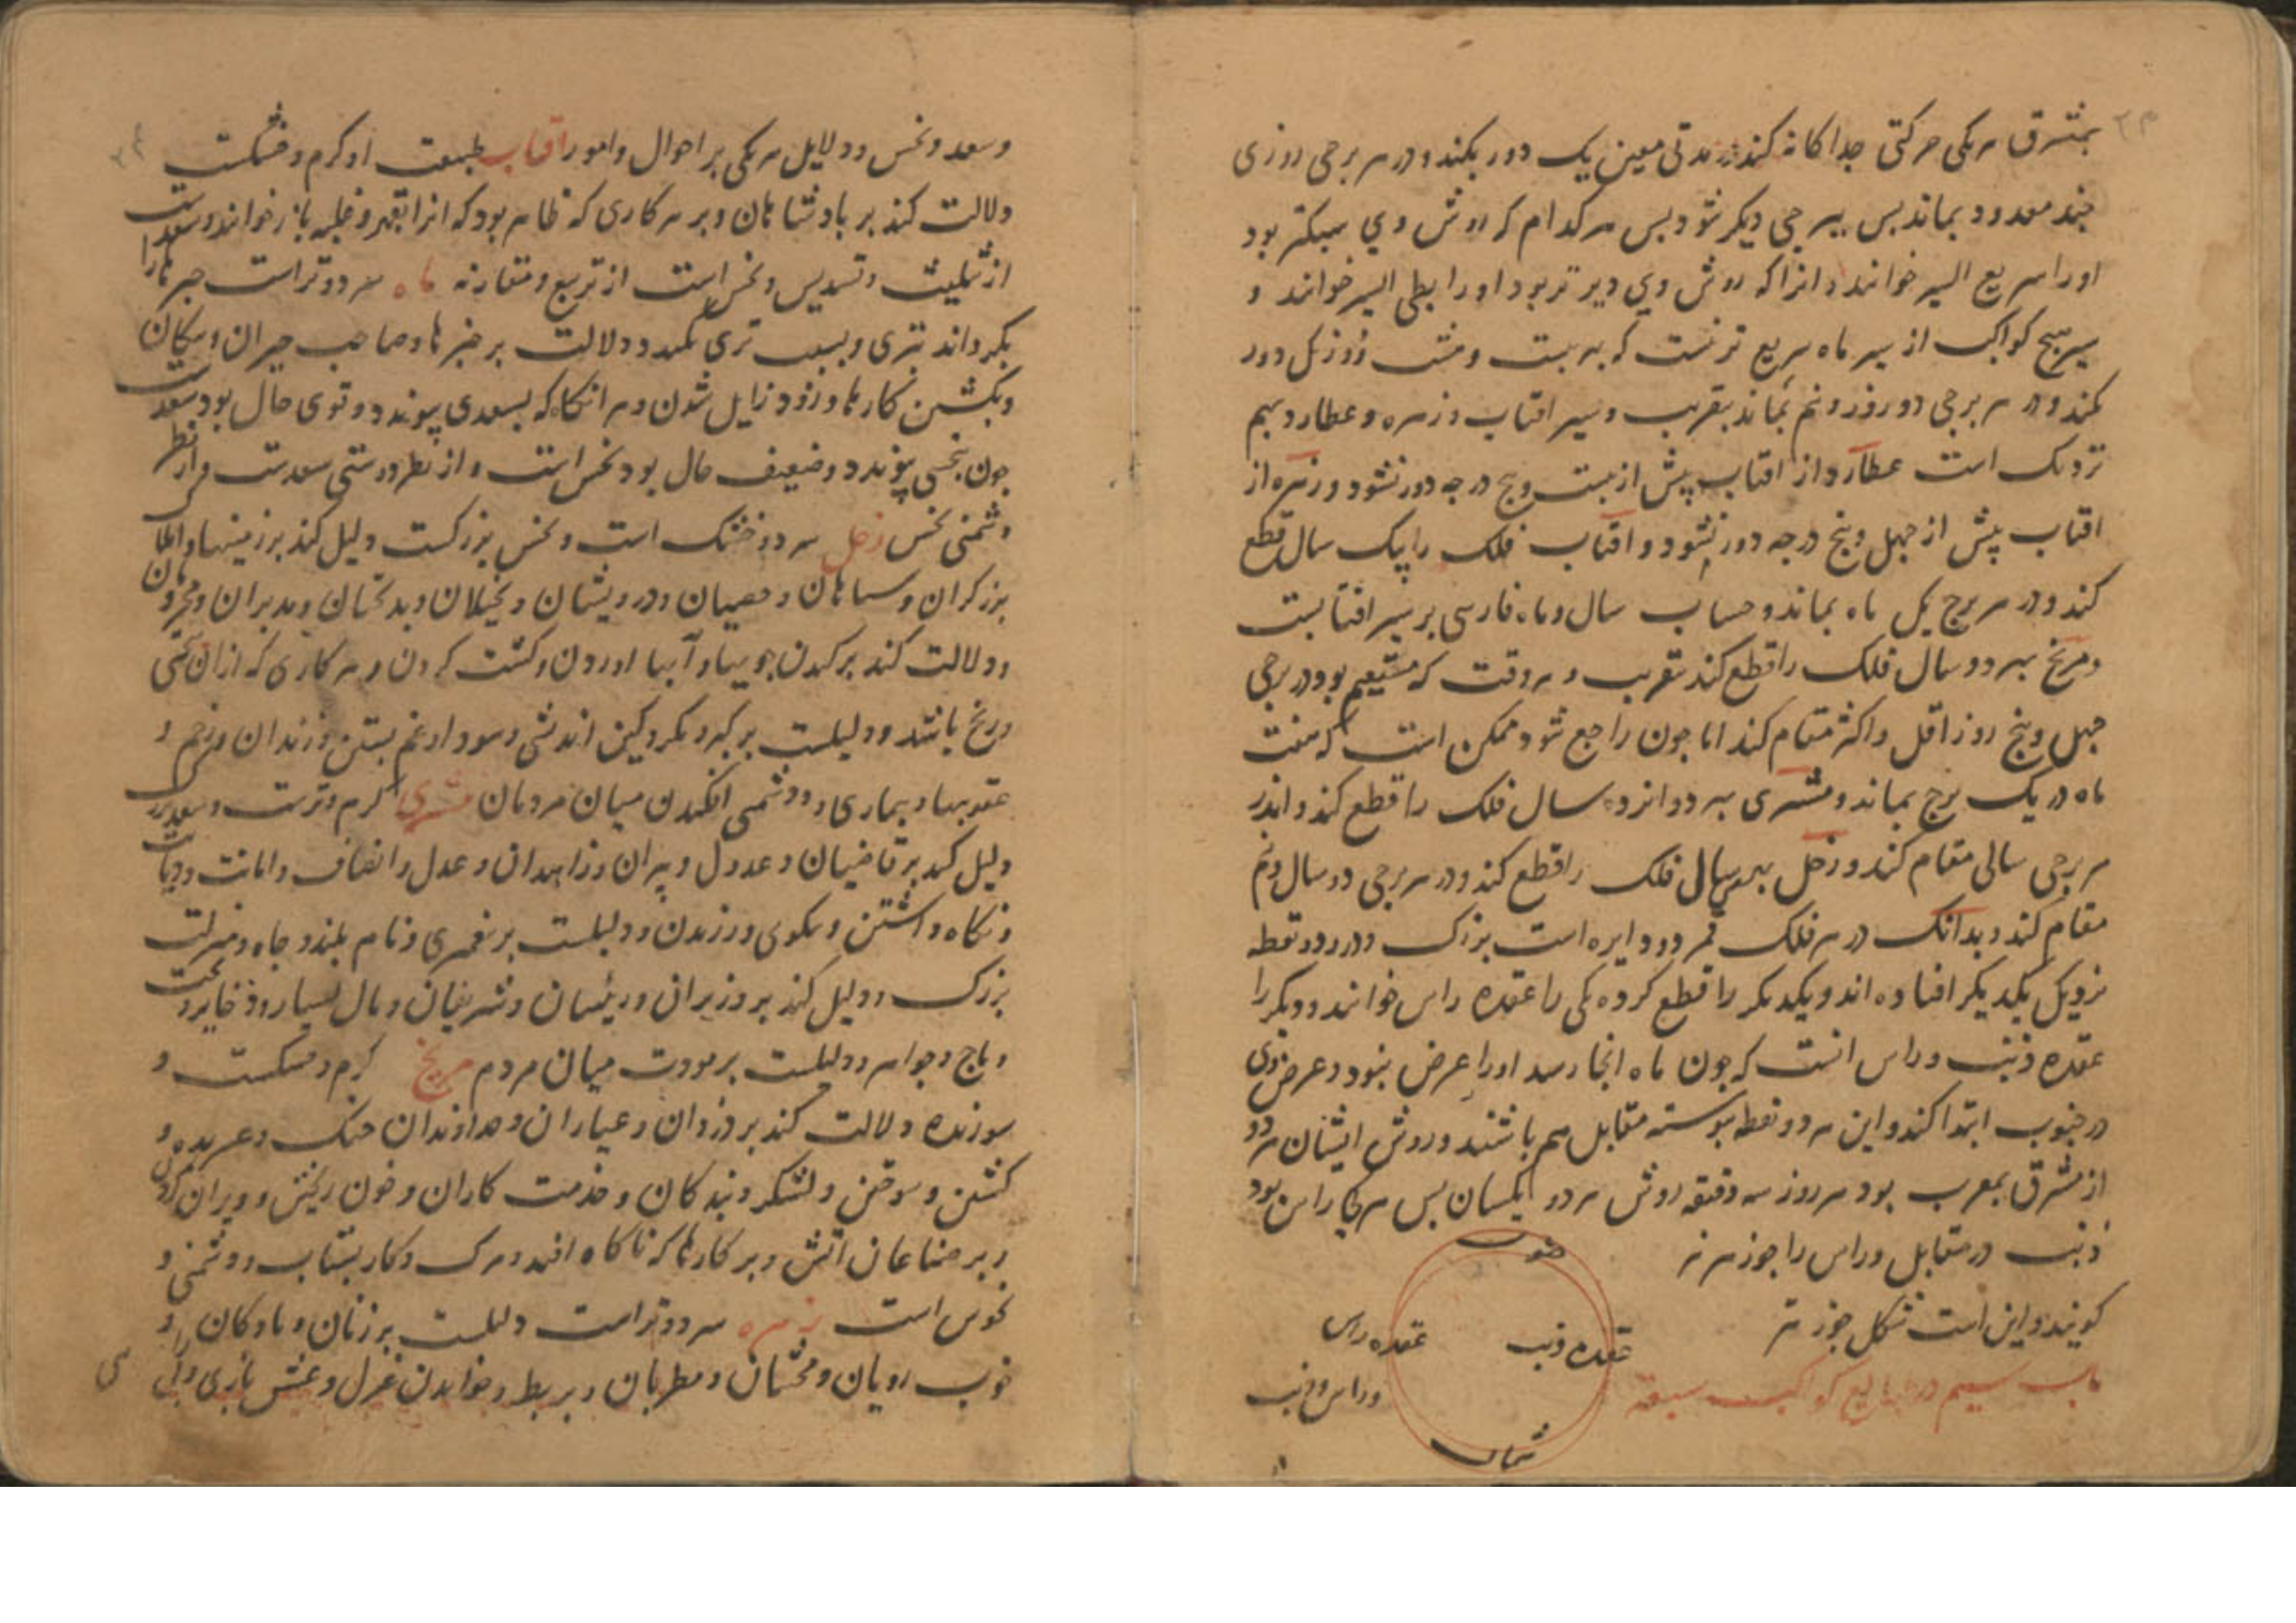 بمشرق هر یکی حرکتی جداکانه کند در مدتی معین یک دور بکند و در هر برجی روزی
چند معدود بماند بس ببرجی دیکر شود بس هر کدام که روش وی سبکتر بود
اورا سریع السیر خوانند و انرا که روش وی دیرتر بود اورا بطی السیر خوانند و
سیر هیچ کواکب از سیر ماه سریع تر نیست که به بیست و هشت روز یک دور
کند و در هر برجی دو روز و نیم بماند بتقریب و سیر افتاب و زهره و عطارد بهم
نزدیک است عطارد از افتاب پیش از بیست و هفت درجه دور نشود و زهره از
افتاب پیش از چهل و پنج درجه دور نشود و افتاب فلک را بیک سال قطع
کند و در هر برج یک ماه بماند و حساب سال و ماه فارسی بر سیر افتابست
و مریخ بهر دو سال فلک را قطع کند بتقریب و هر وقت که مستقیم بود در برجی
چهل و پنج روز اقل و اکثر مقام کند اما چون راجع شود ممکن است که هفت
ماه در یک برج بماند و مشتری بهر دوازده سال فلک را قطع کند و اندر
هر برجی سالی مقام کند و زحل بهر سی سال فلک را قطع کند و در هر برجی دو سال و نیم
مقام کند و بدانک در هر فلک قمر دو دایره است بزرک و در دو نقطه
نزدیک یکدیکر افتاده اند و یکدیکر را قطع کرده یکی را عقده راس خوانند و دیکر را
عقده ذنب و راس انست که چون ماه انجا رسد اورا عرض نبود و عرض وی
در جنوب ابتدا کند و این هر دو نقطه پیوسته مقابل هم باشند و روش ایشان هر دو
از مشرق بمغرب بود هر روز سه دقیقه روش هر دو یکسان بس هر کجا راس بود
ذنب در مقابل و راس را جوزهر نیز
کویند و این است شکل جوزهر
جنوب
عقده ذنب
عقده راس
شمال
باب سیم در طبایع کواکب سبعه
و راس و ذنب
و سعد و نحس و دلایل هر یکی بر احوال و امور افتاب طبیعت او کرم و خشکست
دلالت کند بر بادشاهان و بر هر کاری که ظاهر بود که انرا بقهر و غلبه باز خوانند و سعدست
از تثلیث و تسدیس و نحس است از تربیع و مقارنه ماه سرد و تر است چیزها را
بکرداند بتری و بسبب تری دلالت بر خبرها و صاحب خبران و پیکان
و بکشتن کارها و زود زایل شدن و هر انکاه که بسعدی پیوندد و قوی حال بود سعدست
چون بنحسی پیوندد و ضعیف حال بود نحس است و از نظر دوستی سعدست و از نظر
دشمنی نحس زحل سرد و خشک است و نحس بزرکست دلیل کند بر زمینها و
برزکران و درویشان و بخیلان و بدبختان و مدبران و
و دلالت کند بر کندن جویها و آبها اوردن و کشت کردن و هر کاری که ازان سختی
و رنج باشد و دلیلست بر کبر و مکر و کین اندیشی و سودا و غم بستن و زندان و زخم و
عقوبتها و بیماری و دشمنی افکندن میان مردمان مشتری کرم و ترست و سعد بزرک
دلیل کند بر قاضیان و عدول و پیران و زاهدان و عدل و انصاف و امانت و دیانت
و نکاه داشتن و نیکوی ورزیدن و دلیلست بر و نام بلند و جاه و منزلت
بزرک و دلیل کند بر وزیران و رئیسان و شریفان و مال بسیار و ذخایر و تخت
و تاج و جواهر و دلیلست بر مودت میان مردم مریخ کرم و خشکست و
سوزنده دلالت کند بر دزدان و عیاران و خداوندان جنک و عربده و
کشتن و سوختن و لشکر و بندکان و خدمت کاران و خون ریختن و ویران کردن
و بر صناعان اتش و بر کارها که ناکاه افتد و مرک و کار بشتاب و دشمنی و
نحوس است زهره سرد و تر است دلیلست بر زنان و مادکان و
خوب رویان و مخنثان و مطربان و بربط و خواندن غزل و عشق بازی و